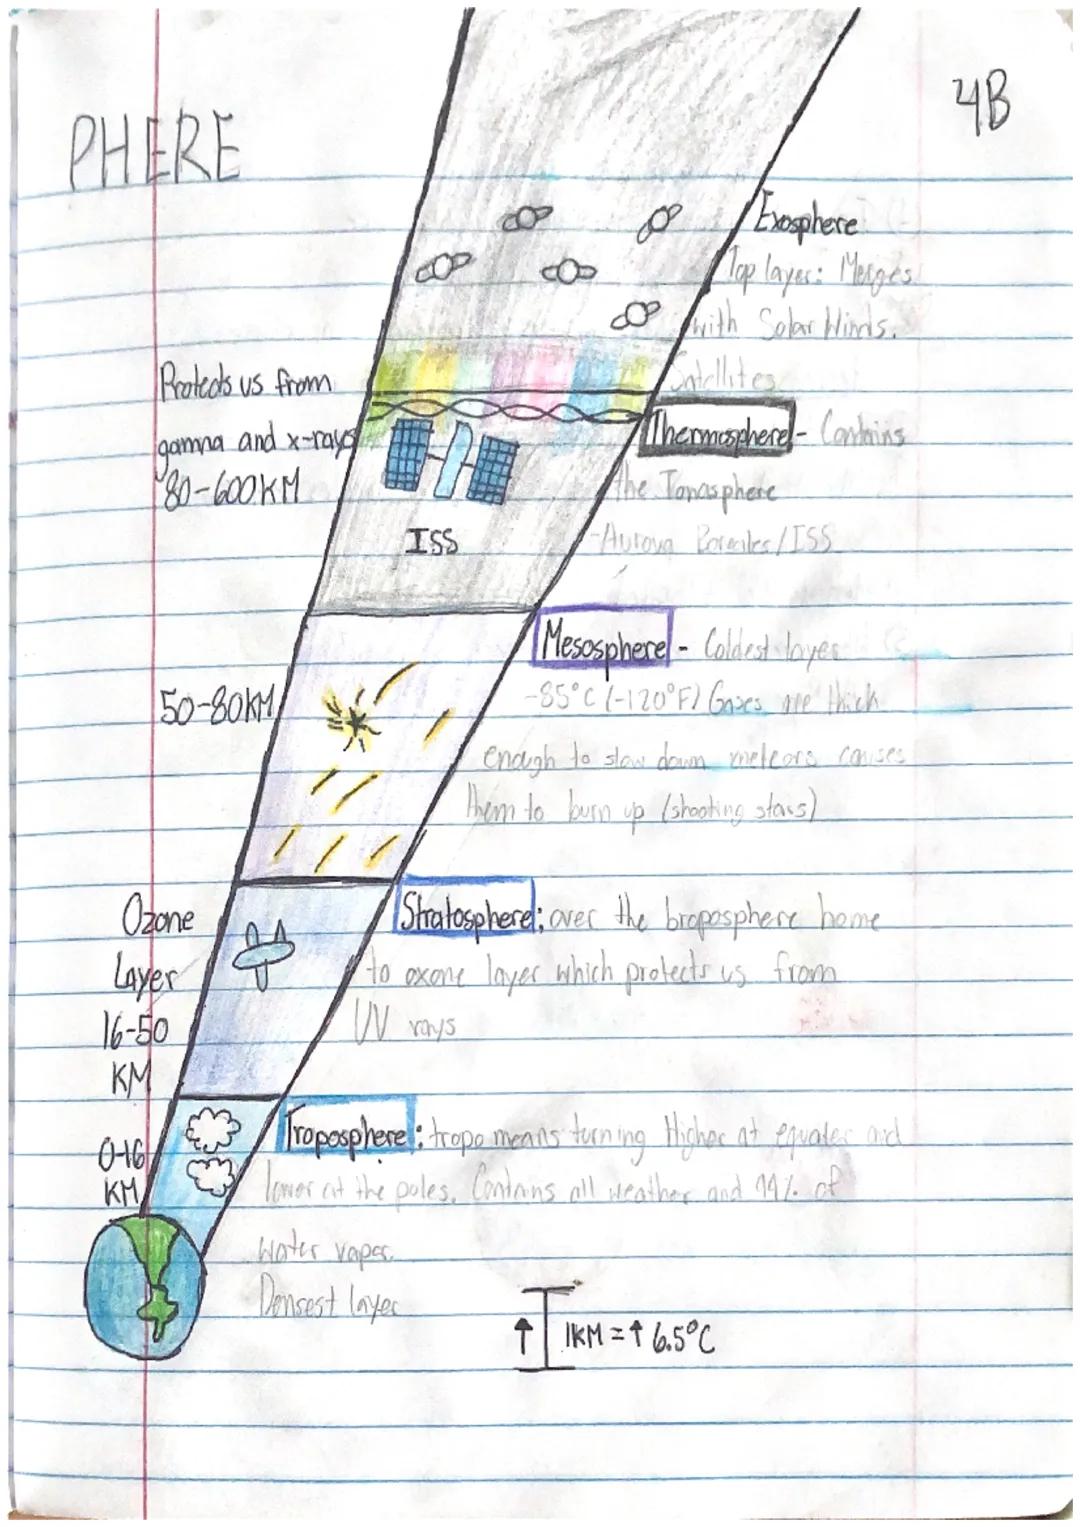 4B
PHERE
Exosphere
Top layer: Merges
with Solar Winds.
Satellites
Protects us from
gamna and x-rays
80-600KM
Thermosphere - Contains
the Ionasphere
-Aurora Boreales/ISS
ISS
Mesosphere - Coldest layer
-85°C (-120°F) Gases are thick
enough to slow down meteors causes
them to burn up (shooting stars)
50-80KM
Ozone
Layer
16-50
KM
Stratosphere: over the troposphere home
to oxone layer which protects us from
UV rays
0-16
KM
Troposphere: tropo means turning Higher at equater and
lower at the poles. Contains all weather and % of
Water vaper.
Densest layer
↑ 1KM = ↑ 6.5°C